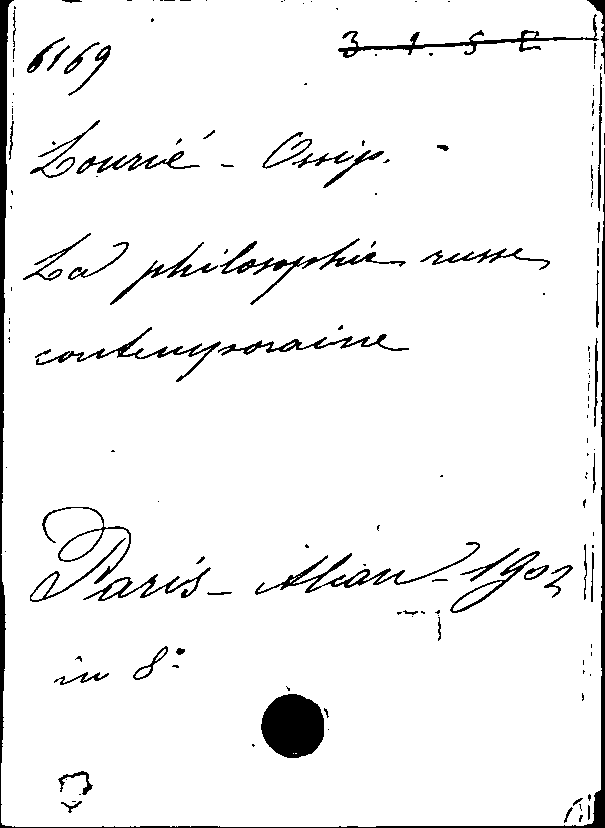 6169
3. 1. 5 E
Lourié - Ossip.
La philosophie russe
contemporaine
Paris - Alcan - 1902
in 8º